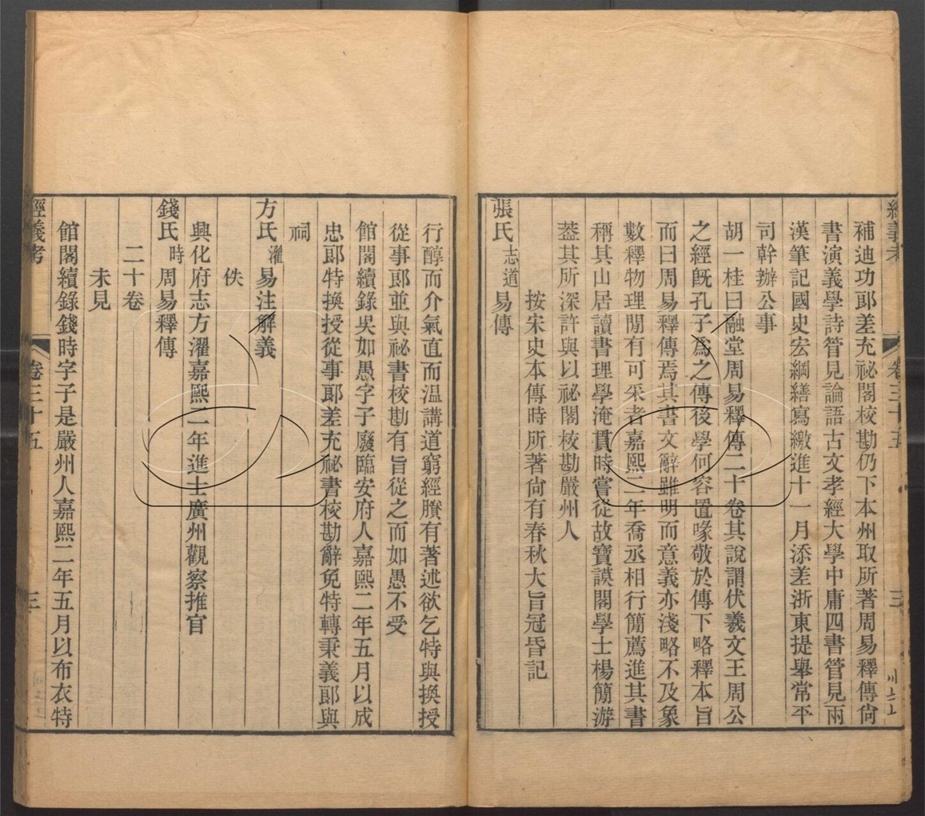 經義考 卷三十五 三
補迪功郎差充祕閣校勘仍下本州取所著周易釋傳尙
書演義學詩管見論語古文孝經大學中庸四書管見兩
漢筆記國史宏綱繕寫繳進十一月添差浙東提舉常平
司幹辦公事
胡一桂曰融堂周易釋傳二十卷其說謂伏羲文王周公
之經旣孔子爲之傳後學何容置喙敬於傳下略釋本旨
而曰周易釋傳焉其書文辭雖明而意義亦淺略不及象
數釋物理閒有可采者嘉熙二年喬丞相行簡薦進其書
稱其山居讀書理學淹貫時嘗從故寶謨閣學士楊簡游
葢其所深許與以祕閣校勘嚴州人
按宋史本傳時所著尙有春秋大旨冠昏記
張氏志道易傳
行醇而介氣直而温講道窮經賸有著述欲乞特與換授
從事郎並與祕書校勘有旨從之而如愚不受
館閣續錄吳如愚字子發臨安府人嘉熙二年五月以成
忠郎特換授從事郎差充祕書校勘辭免特轉秉義郎與
祠
方氏濯易注解義
佚
興化府志方濯嘉熙二年進士廣州觀察推官
錢氏時周易釋傳
二十卷
未見
館閣續錄錢時字子是嚴州人嘉熙二年五月以布衣特
經義考 卷三十五 三